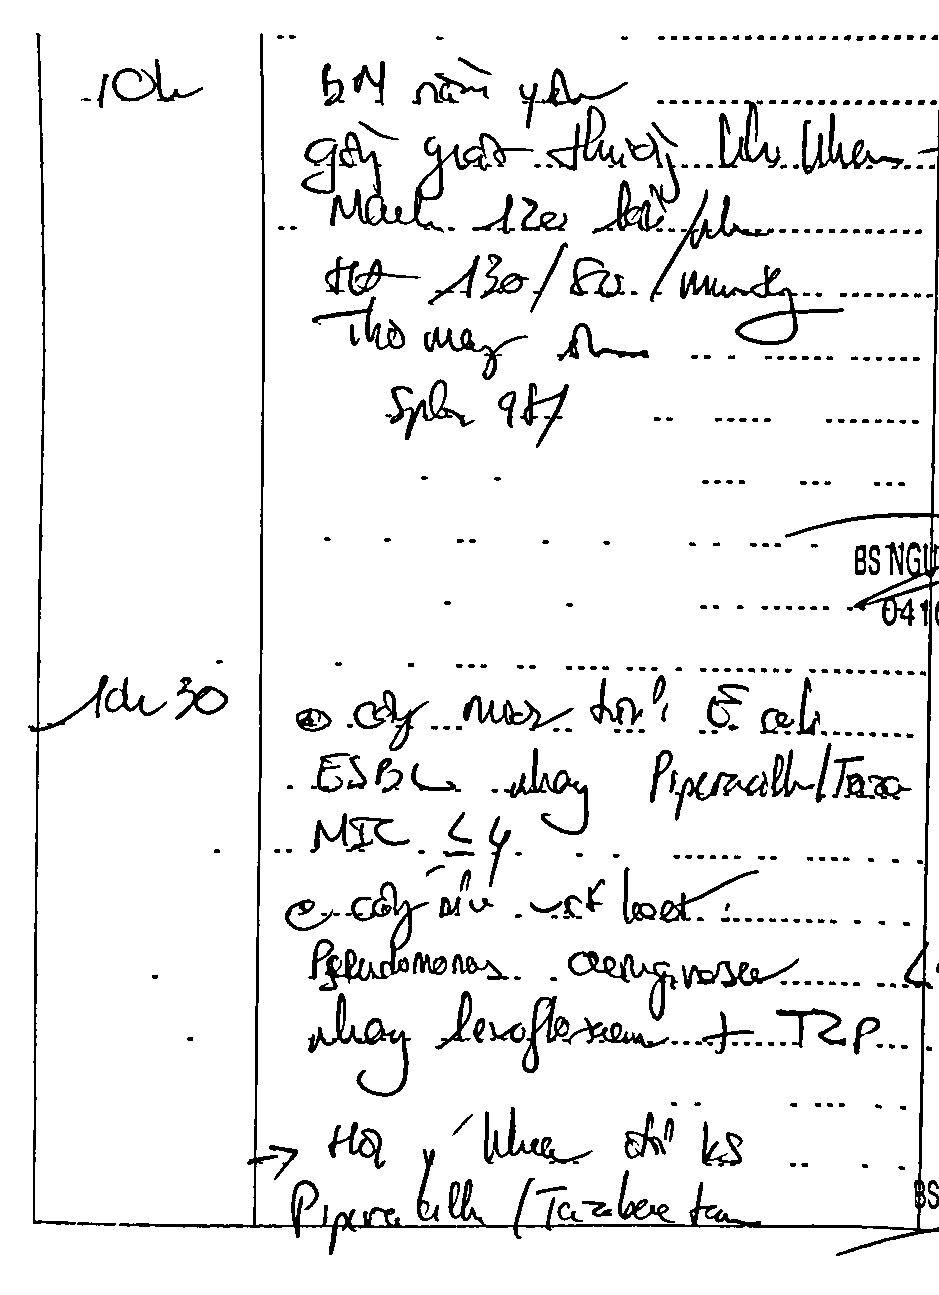 10h
BN nằm yên
Mạch 120 lần/ph
HA 130/80 mmHg
Thở máy
SpO2 98%
BS NGU
041
10h30
cấy máu E coli
ESBL nhạy Piperacillin/Tazo
MIC ≤ 4
cấy vết loét :
Pseudomonas aeruginosa
nhạy levofloxacin + TZP
→ Hội ý khoa đổi KS
Piperacillin /Tazobactam
BS